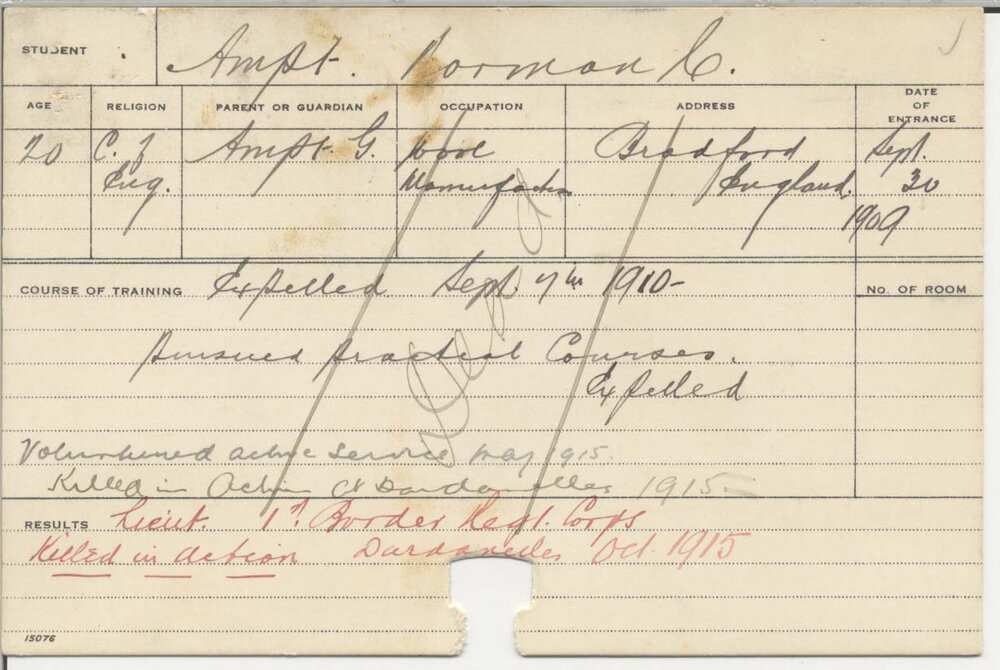 STUDENT Ampt. Norman C.
AGE RELIGION PARENT OR GUARDIAN OCCUPATION ADDRESS DATE OF ENTRANCE
20 C. of Ampt. G. Wool Bradford Sept.
Eng. England. 30
1909
COURSE OF TRAINING Expelled Sept. 7th 1910- No. OF ROOM
Pursued practical Courses.
Expelled
Volunteered active service May 1915.
Killed in Action at Dardanelles 1915-
RESULTS Lieut. 1st Border Regt. Corps
Killed in action Dardanelles Oct. 1915
15076